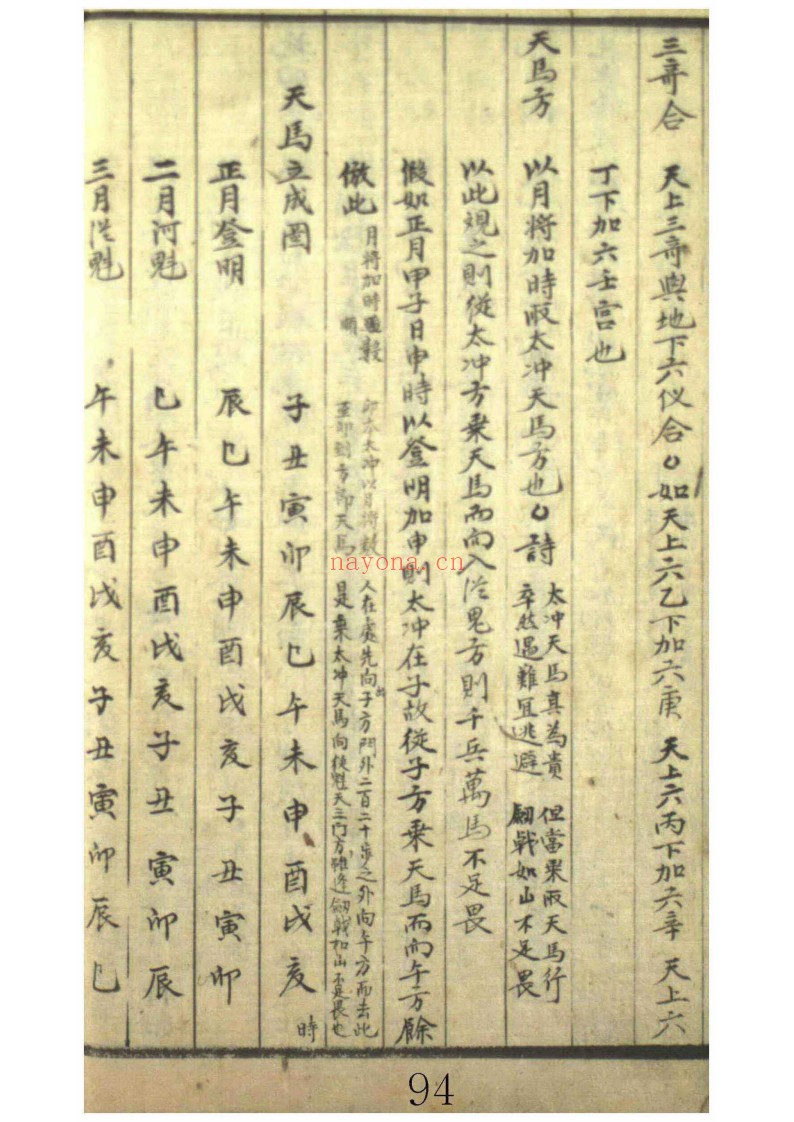 三奇合 天上三奇與地下六仪合○如天上六乙下加六庚 天上六丙下加六辛 天上六
丁下加六壬宫也
天馬方 以月将加時取太冲天馬方也○詩 太冲天馬真為貴 卒然遇難宜逃避 但當乘取天馬行 劔戟如山不足畏
以此覌之則從太冲方乗天馬而向入从鬼方則千兵萬馬不足畏
假如正月甲子日申時以登明加申則太冲在子故從子方乗天馬而向午方餘
倣此 月将加時 順 數 卯本太冲以月将數 至卯則方即天馬 人在處先向子方出門外二百二十步之外向午方而去此 是乗太冲天馬向從魁天三門方雖逢劔戟如山不足畏也
天馬立成圖 子丑寅卯辰巳午未申酉戌亥 時
正月登明 辰巳午未申酉戌亥子丑寅卯
二月河魁 巳午未申酉戌亥子丑寅卯辰
三月從魁 午未申酉戌亥子丑寅卯辰巳
nayona.cn
94